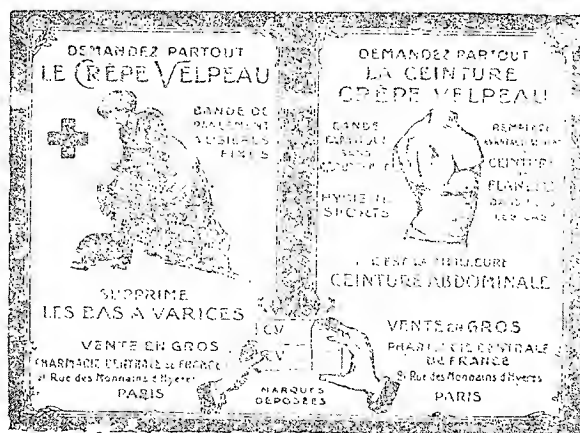 DEMANDEZ PARTOUT
LE CRÊPE VELPEAU
BANDE DE
PANSEMENT
À LISIÈRES
FIXES
SUPPRIME
LES BAS A VARICES
VENTE EN GROS
PHARMACIE CENTRALE DE FRANCE
21 Rue des Nonnains d'Hyeres
PARIS
DEMANDEZ PARTOUT
LA CEINTURE
CRÊPE VELPEAU
BANDE
SANS
HYGIENE
SPORTS
REMPLACE
CEINTURE
DE
FLANELLE
DANS TOUS
LES CAS
C'EST LA MEILLEURE
CEINTURE ABDOMINALE
VENTE EN GROS
PHARMACIE CENTRALE
DE FRANCE
21 Rue des Nonnains d'Hyeres
PARIS
C.V
C.V
MARQUES
DEPOSÉES